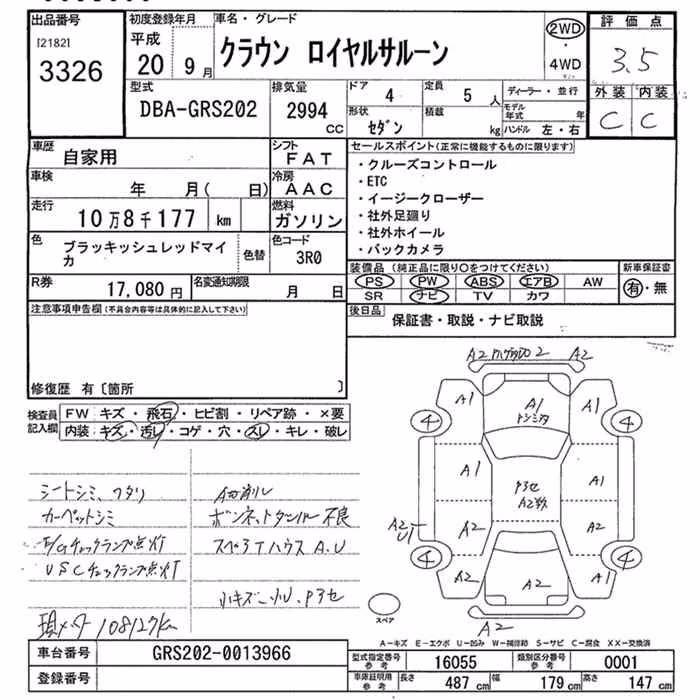 出品番号
[2182]
3326
初度登録年月
平成
20 9 月
車名・グレード
クラウン ロイヤルサルーン
2WD
・
4WD
評価点
3.5
外装 内装
C C
型式
DBA-GRS202
排気量
2994
CC
ドア
4
定員
5 人
形状
セダン
積載
kg
ディーラー・並行
モデル年式 年
ハンドル 左・右
車歴
自家用
シフト
FAT
車検
年 月( 日)
冷房
AAC
走行
10万8千177 km
燃料
ガソリン
色
ブラッキッシュレッドマイカ
色替
色コード
3R0
R券
17,080 円
名変通知期限
月 日
セールスポイント(正常に機能するものに限ります)
・クルーズコントロール
・ETC
・イージークローザー
・社外足廻り
・社外ホイール
・バックカメラ
装備品 (純正品に限り○をつけてください)
PS PW ABS エアB AW
SR ナビ TV カワ
新車保証書
有・無
後日品
保証書・取説・ナビ取説
注意事項申告欄(不具合内容等は具体的に記入して下さい)
修復歴 有〔箇所 〕
検査員記入欄
FW キズ・飛石・ヒビ割・リペア跡・×要
内装 キズ・汚レ・コゲ・穴・スレ・キレ・破レ
シートシミ、
カーペットシミ
E/Gチェックランプ点灯
VSCチェックランプ点灯
現メータ 108127km
ボンネットダンパー不良
A.U
小キズ
A2 2 A2
A1 A1 A1
4 4
A1 A1
A2 A2 A2
4 4
A2 A2 A2
A2
スペア
A-キズ E-エクボ U-凹み W-補修跡 S-サビ C-腐食 XX-交換済
車台番号
GRS202-0013966
登録番号
型式指定番号 参考
16055
類別区分番号 参考
0001
車庫証明用 参考
長さ 487 cm 幅 179 cm 高さ 147 cm